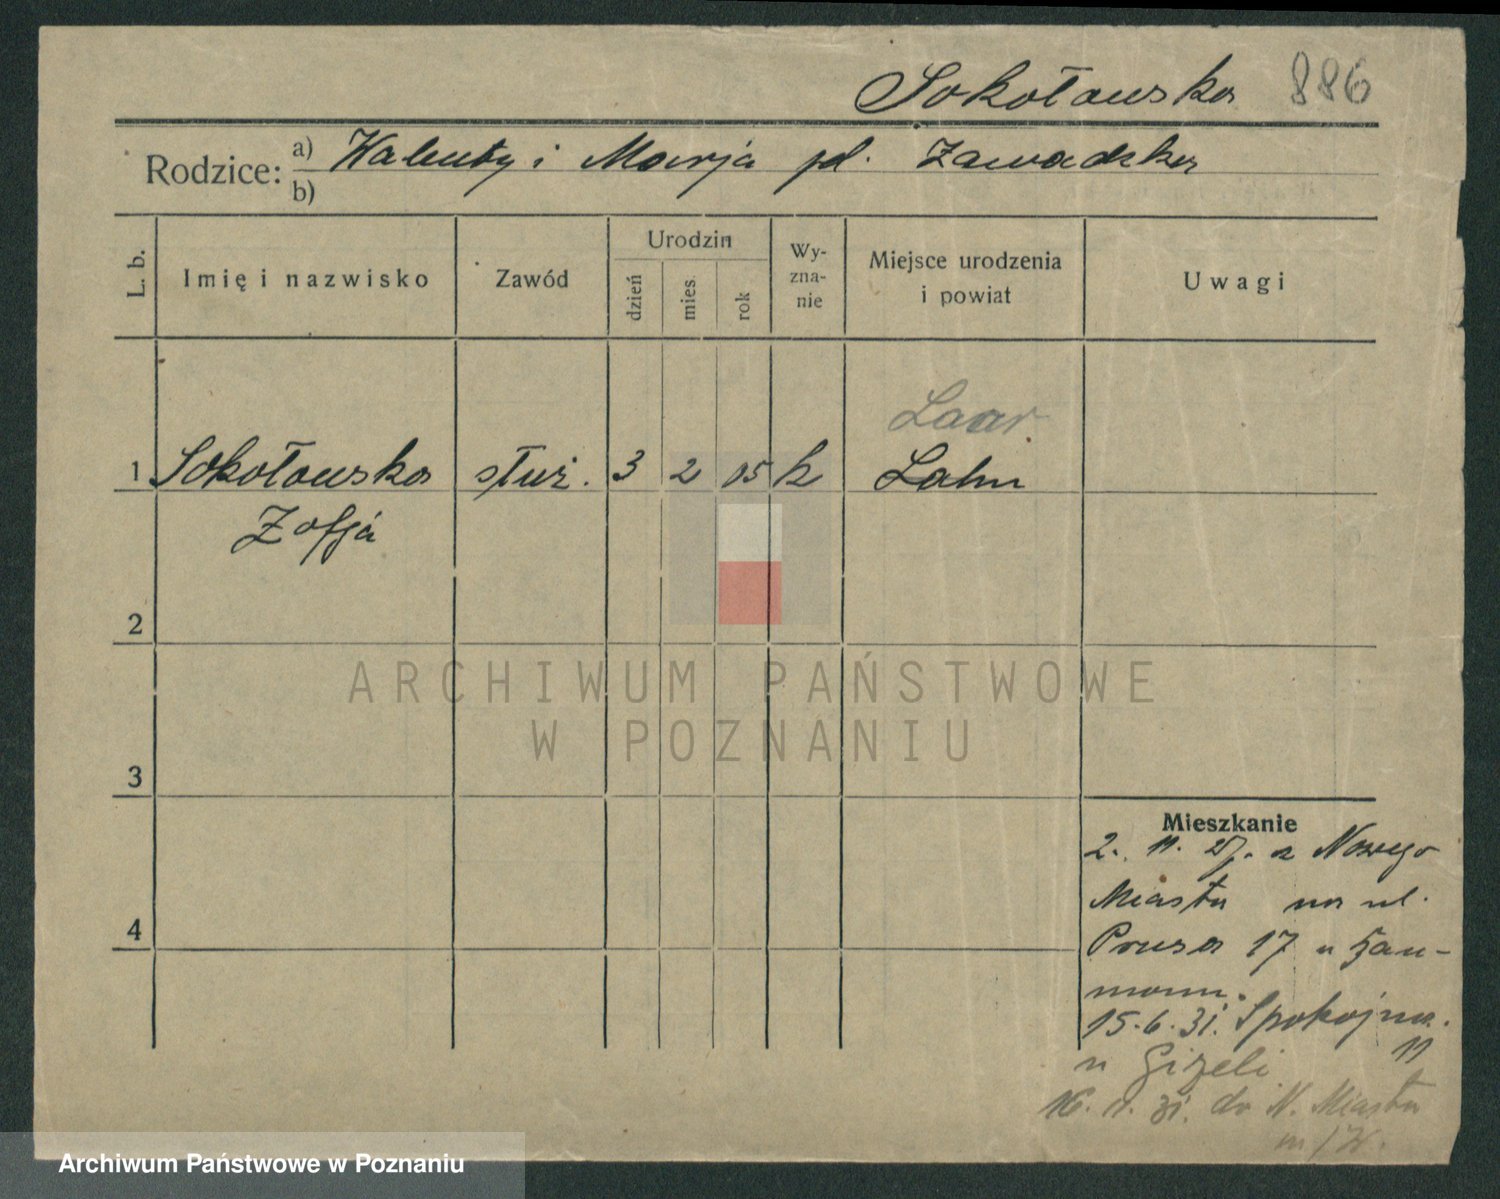 Sokołowska 886
Rodzice: a) Walenty i Marja pd. Zawadzka
b)
L. b. Imię i nazwisko Zawód Urodzin dzień mies. rok Wy-zna-nie Miejsce urodzenia i powiat Uwagi
Laar
1 Sokołowska służ. 3 2 05 k Lahn
Zofja
2
ARCHIWUM PAŃSTWOWE
W POZNANIU
3
Mieszkanie
2. 11. 27. z Nowego
Miasta na ul.
4
Prusa 17 u
15.6.31. Spokojna.
11
u Gizeli
16. 31. do N. Miasta
n/W.
Archiwum Państwowe w Poznaniu